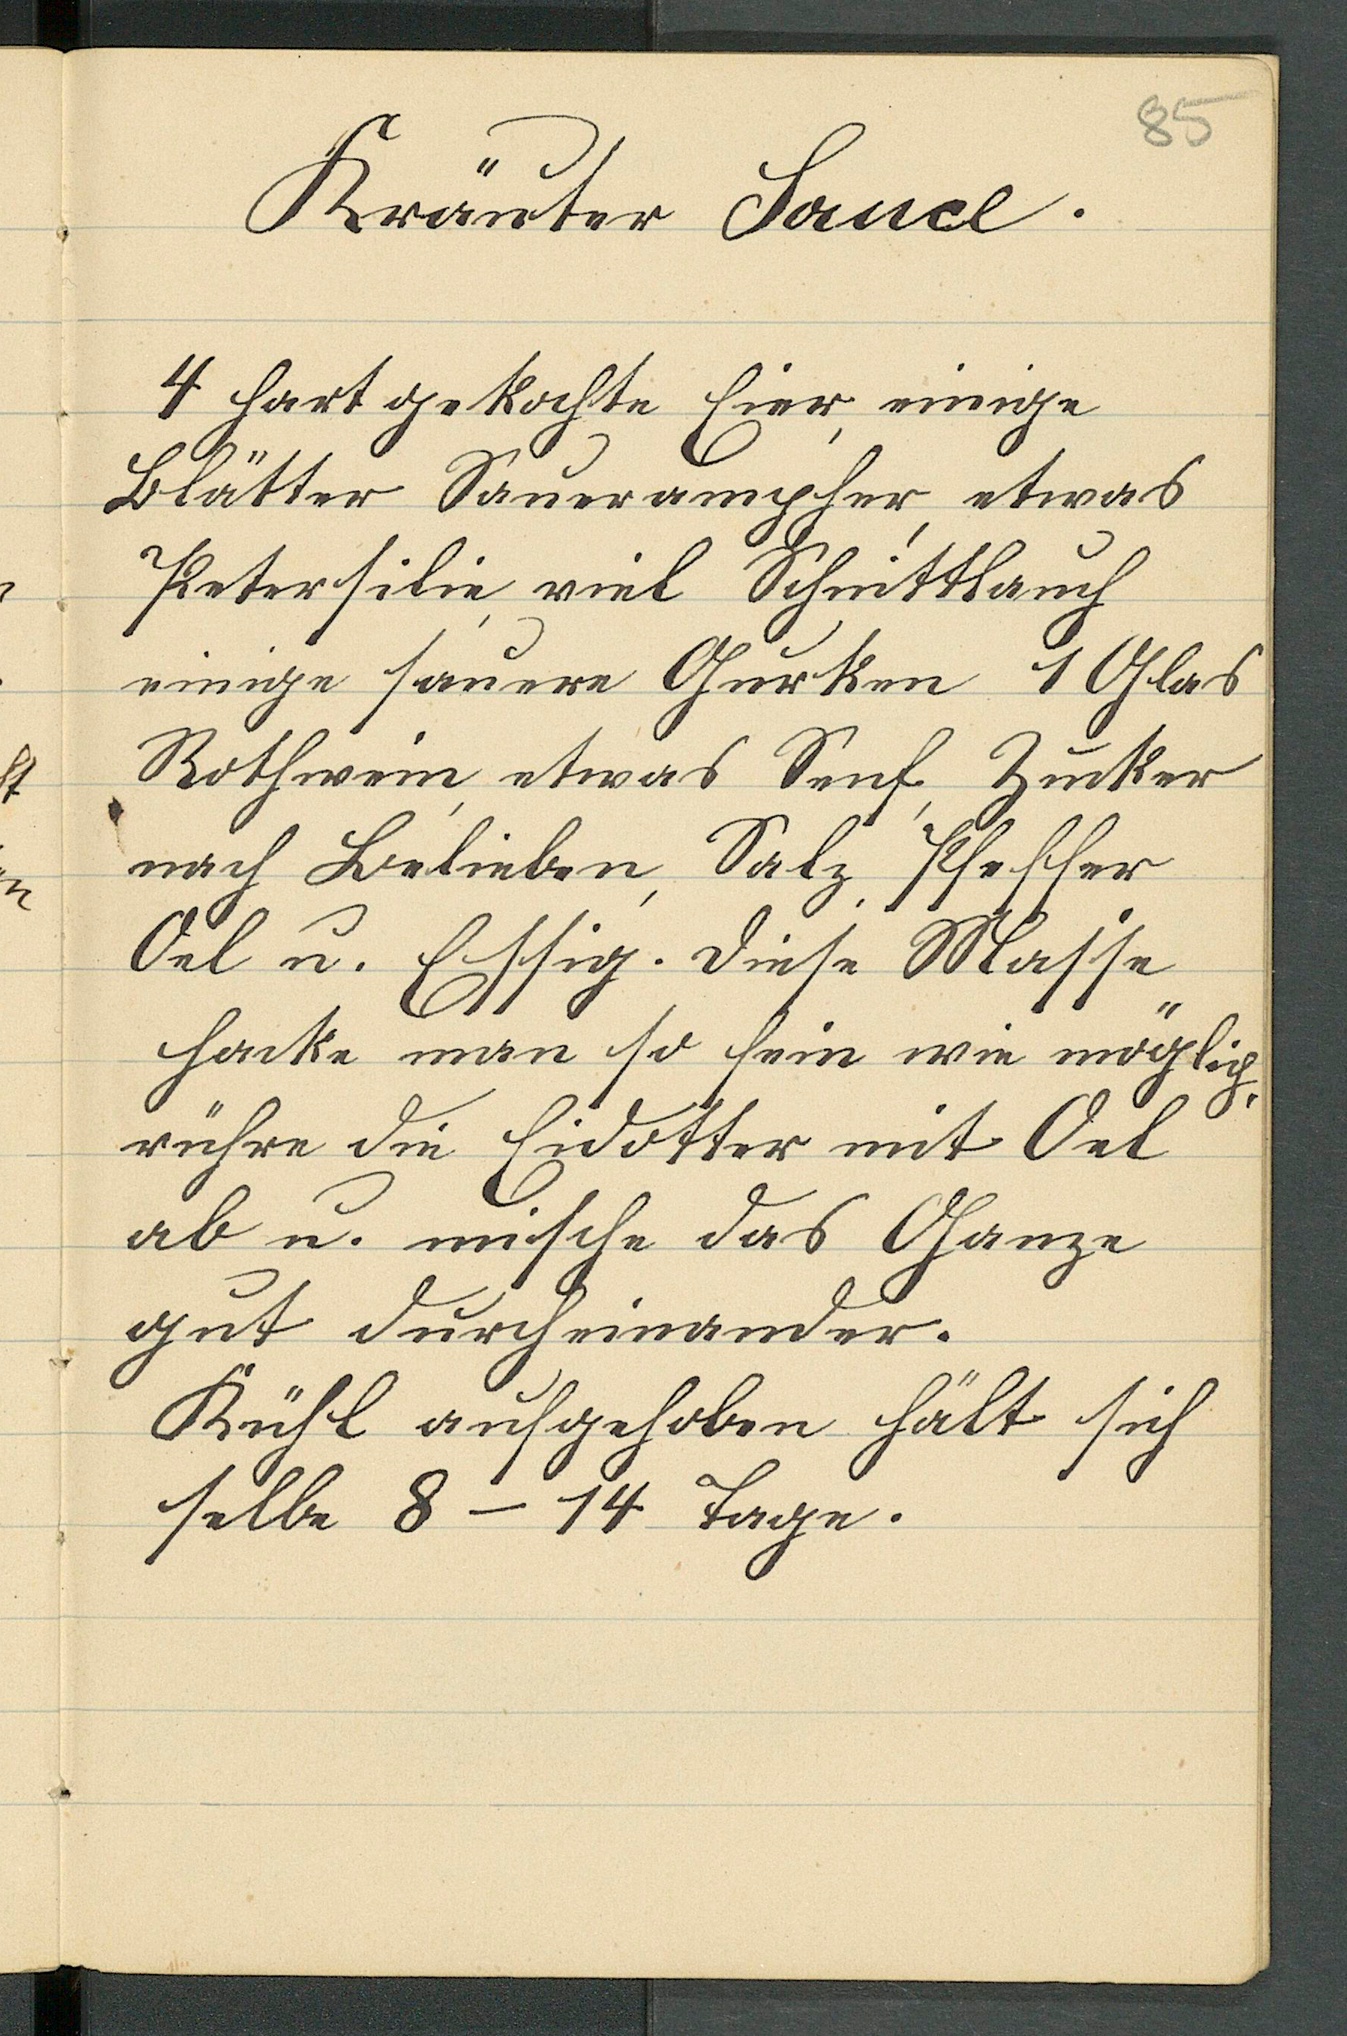 85
Kräuter Sauce.
4 hart gekochte Eier, einige
Blätter Sauerampher, etwas
Petersilie, viel Schnittlauch
einige sauere Gurken 1 Glas
Rothwein, etwas Senf, Zucker
nach Belieben, Salz, Pfeffer
Oel u. Essig. Diese Masse
hacke man so fein wie möglich,
rühre die Eidotter mit Oel
ab u. mische das Ganze
gut durcheinander.
Kühl aufgehoben hält sich
selbe 8 – 14 Tage.